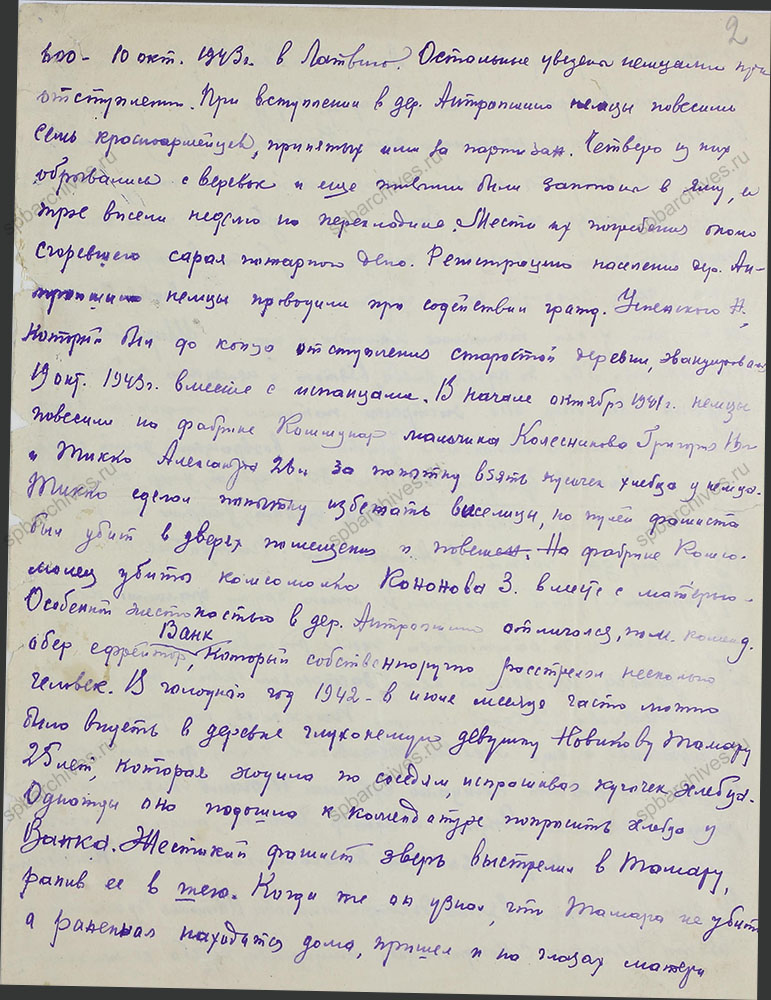 2
800 - 10 окт. 1943г. в Латвию. Остальные уведены немцами при
отступлении. При вступлении в дер. Антропшино немцы повесили
семь красноармейцев, принятых ими за партизан. Четверо из них
обрывались с веревок и еще живыми были закопаны в яму, а
трое висели неделю на перекладине. Место их погребения около
сгоревшего сарая пожарного депо. Регистрацию населения дер. Ан-
тропшино немцы проводили при содействии гражд. Успенского Н.,
который был до конца отступления старостой деревни, эвакуировался
19 окт. 1943г. вместе с испанцами. В начале октября 1941г. немцы
повесили на фабрике Коммунар мальчика Колесникова Григория
и Тикко Александра 26 л за попытку взять кусочек хлебца у немца.
Тикко сделал попытку избежать виселицы, но пулей фашиста
был убит в дверях помещения и повешен. На фабрике Комсо-
молец убита комсомолка Кононова З. вместе с матерью.
Особенной жестокостью в дер. Антропшино отличался пом. команд.
обер ефрейтор Ванк, который собственноручно расстрелял несколько
человек. В голодный год 1942 - в июне месяце часто можно
было видеть в деревне глухонемую девушку Новикову Тамару
25 лет, которая ходила по соседям, испрашивая кусочек хлебца.
Однажды она подошла к комендатуре попросить хлебца у
Ванка. Жестокий фашист зверь выстрелил в Тамару,
ранив ее в шею. Когда же он узнал, что Тамара не убита
а раненая находится дома, пришел и на глазах матери
spbarchives.ru